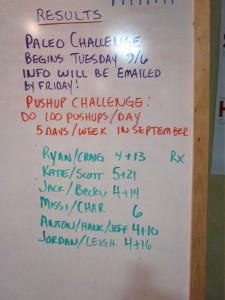 RESULTS
PALEO CHALLENGE
BEGINS TUESDAY 9/6
INFO WILL BE EMAILED
BY FRIDAY!
PUSHUP CHALLENGE:
DO 100 PUSHUPS/DAY
5 DAYS/WEEK IN SEPTEMBER
RYAN/CRAIG 4+13 RX
KATIE/SCOTT 5+21
JACK/BECKY 4+14
MISSI/CHAR 6
ANTON/HANK/JEFF 4+10
JORDAN/LEIGH 4+16